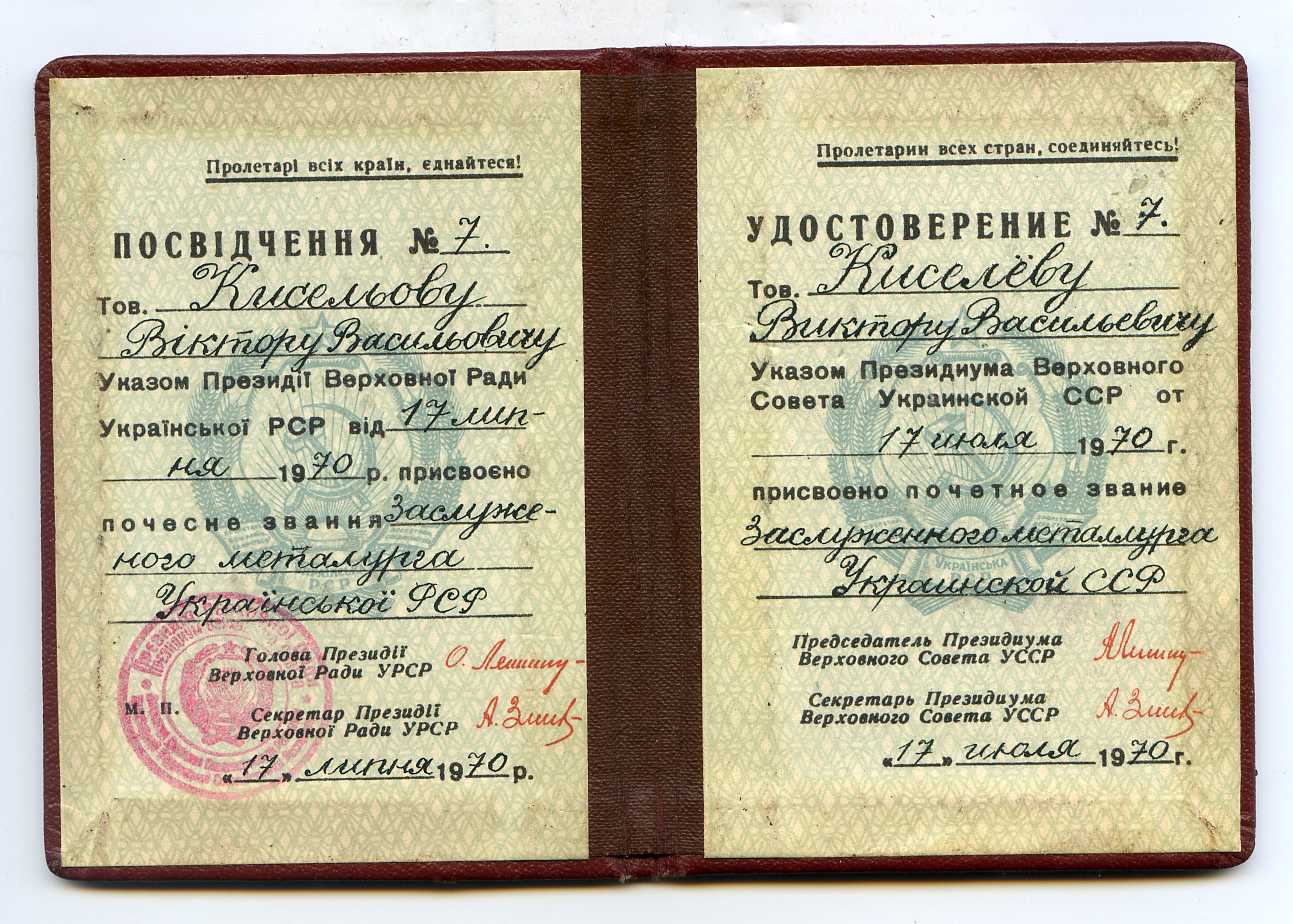 Пролетарі всіх країн, єднайтеся!
ПОСВІДЧЕННЯ № 7.
Тов. Кисельову
Віктору Васильовичу
Указом Президії Верховної Ради
Української РСР від 17 лип-
ня 1970 р. присвоєно
почесне звання Заслуже-
ного металурга
Української РСР
Голова Президії
Верховної Ради УРСР
М. П.
Секретар Президії
Верховної Ради УРСР
«17» липня 1970 р.
Пролетарии всех стран, соединяйтесь!
УДОСТОВЕРЕНИЕ № 7.
Тов. Киселёву
Виктору Васильевичу
Указом Президиума Верховного
Совета Украинской ССР от
17 июля 1970 г.
присвоено почетное звание
Заслуженного металлурга
УКРАЇНСЬКА
Украинской ССР
Председатель Президиума
Верховного Совета УССР
Секретарь Президиума
Верховного Совета УССР
«17» июля 1970 г.